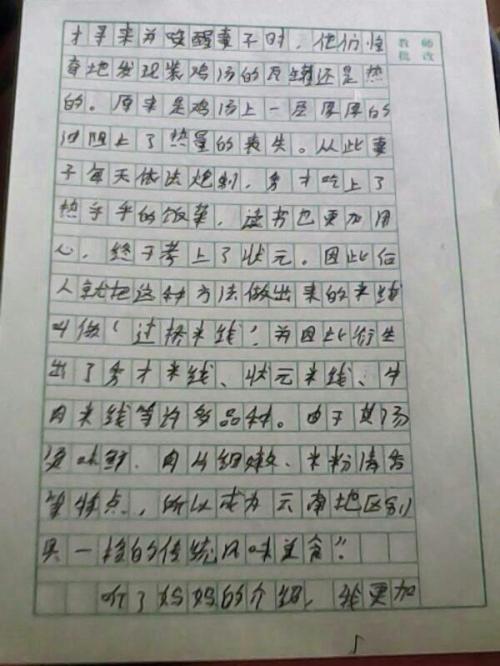 才寻来并唤醒妻子时，他们怪
奇地发现装鸡汤的瓦罐还是热
的。原来是鸡汤上一层厚厚的
油阻止了热量的丧失。从此妻
子每天依法炮制，秀才吃上了
热乎乎的饭菜，读书也更加用
心，终于考上了状元。因此后
人就把这种方法做出来的米线
叫做“过桥米线”。并因此衍生
出了秀才米线、状元米线、牛
肉米线等许多品种。由于其汤
味鲜、肉片细嫩、米粉清香
等特点，所以成为云南地区别
具一格的传统风味美食”。
听了妈妈的介绍，我更加
教师
批改